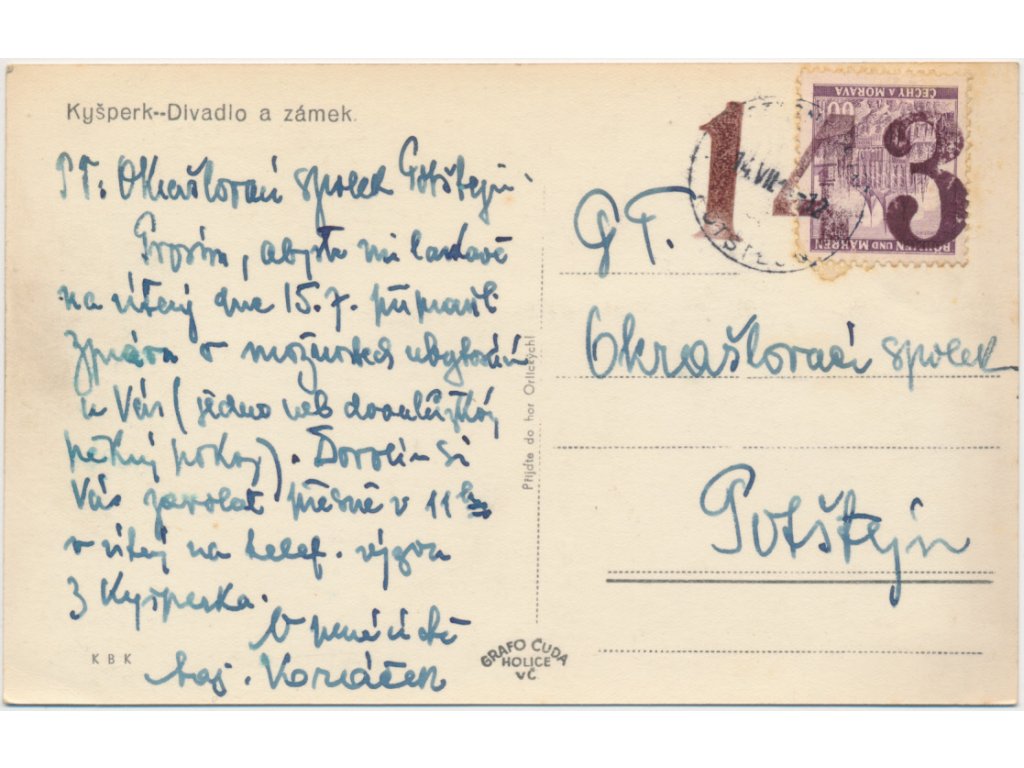 Kyšperk--Divadlo a zámek.
PT: Okrašlovací spolek Potštejn
Prosím, abyste mi laskavě
na úterý dne 15.7. připravil
zprávu o možnostech ubytování
u Vás (jedno neb dvoulůžkový
pěkný pokoj). Dovolím si
Vás zavolat přesně v 11 h
v úterý na telef. výzvu
z Kyšperka.
V úctě
Voráček
KBK
Přijďte do hor Orlických!
GRAFO ČUDA
HOLICE
VČ
14.VII
143
60
ČECHY A MORAVA
BÖHMEN UND MÄHREN
PT.
Okrašlovací spolek
Potštejn